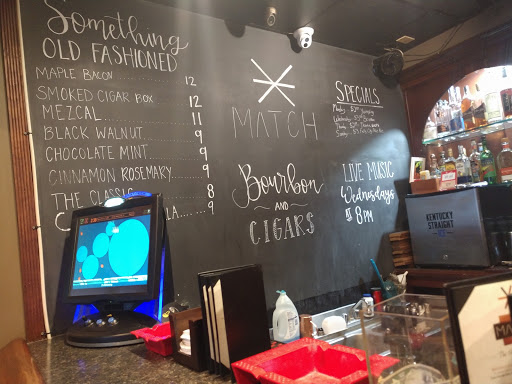 Something
OLD FASHIONED
MAPLE BACON 12
SMOKED CIGAR BOX 12
MEZCAL 11
BLACK WALNUT 9
CHOCOLATE MINT 9
CINNAMON ROSEMARY 9
THE CLASSIC 8
9
MATCH
Bourbon
AND
CIGARS
SPECIALS
LIVE MUSIC
Wednesdays
@ 8PM
KENTUCKY
STRAIGHT